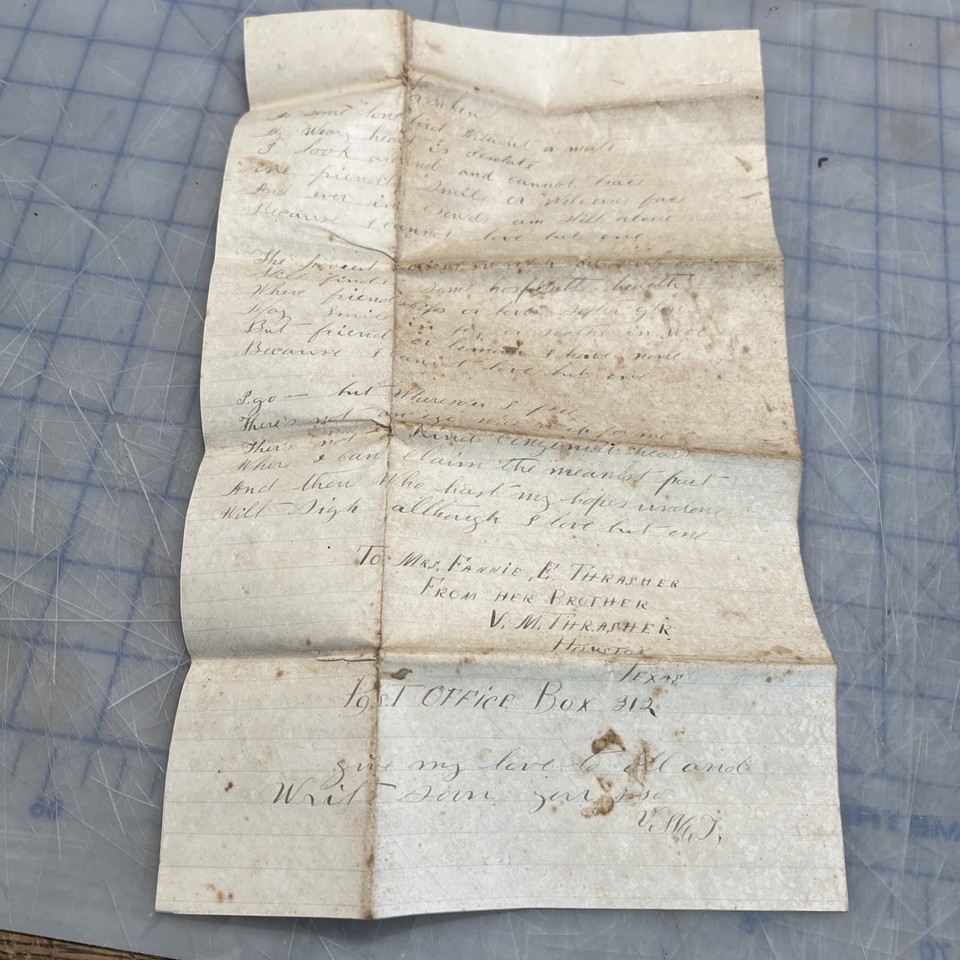 some lone bird without a mate
My Weary heart is desolate
I look around and cannot trace
one friendly Smile or welcome face
And ever in crowds am still alone
Because I cannot love but one
The
finds some hospitable hearth
Where friendships or loves softer glow
May Smile in joy or soothe in woe
But friend or leman I have none
Because I cannot love but one
I go - but Wheresoer I flee
There's not an eye will weep for me
Ther's not a Kind Congenial heart
Where I can claim the meanest part
And thou Who hast my hopes undone
Wilt Sigh although I love but one
To Mrs. Fannie E. Thrasher
From her Brother
V. M. Thrasher
Houston
Texas
Post Office Box 312
give my love to all and
Writ Soon
V. M. T.